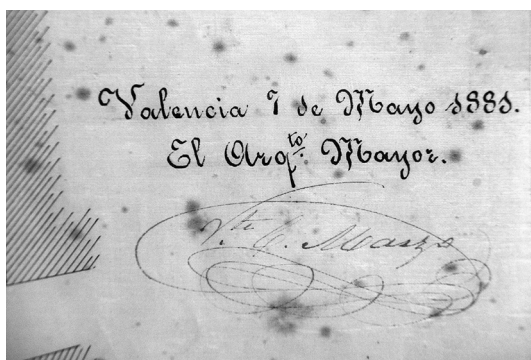 Valencia 7 de Mayo 1881.
El Arq.to Mayor.
V.te C. Marzo